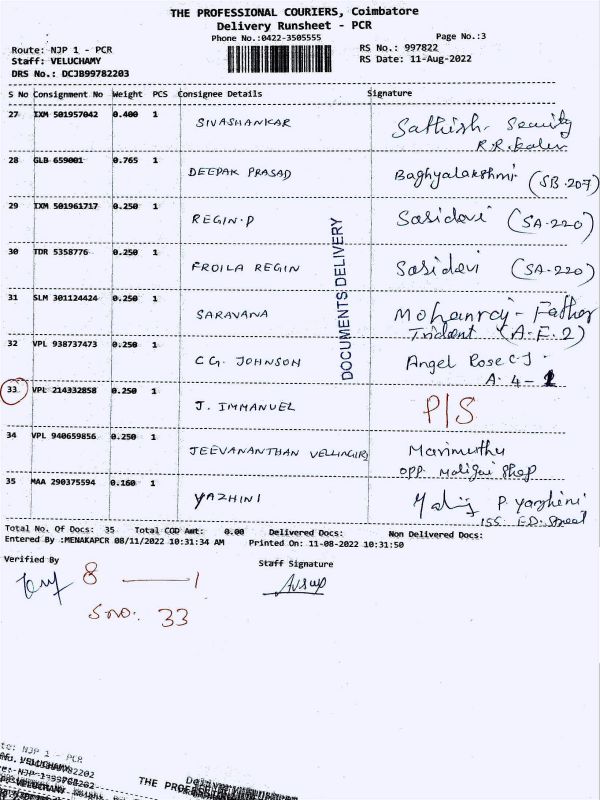 THE PROFESSIONAL COURIERS, Coimbatore
Delivery Runsheet - PCR
Phone No.:0422-3505555
Page No.:3
Route: NJP 1 - PCR
RS No.: 997822
Staff: VELUCHAMY
RS Date: 11-Aug-2022
DRS No.: DCJB99782203
S No Consignment No Weight PCS Consignee Details Signature
27 IXM 501957042 0.400 1 SIVASHANKAR Sathish. Security
R.R.
28 GLB 659001 0.765 1 DEEPAK PRASAD Baghyalakshmi (SB.207)
29 IXM 501961717 0.250 1 REGIN.P Sasidevi (SA-220)
30 TDR 5358776 0.250 1 FROILA REGIN Sasidevi (SA-220)
31 SLM 301124424 0.250 1 SARAVANA Mohanraj - Father
Trident (A.F.2)
32 VPL 938737473 0.250 1 C.G. JOHNSON Angel Rose C.J.
A. 4-1
33 VPL 214332858 0.250 1 J. IMMANUEL P/S
34 VPL 940659856 0.250 1 JEEVANANTHAN VELLINGIRI Marimuthu
opp. Maligai Shop
35 MAA 290375594 0.160 1 YAZHINI P. Yazhini
155 E.D. Street
DOCUMENTS DELIVERY
Total No. Of Docs: 35 Total COD Amt: 0.00 Delivered Docs: Non Delivered Docs:
Entered By :MENAKAPCR 08/11/2022 10:31:34 AM Printed On: 11-08-2022 10:31:50
Verified By
Staff Signature
8 — 1
S no. 33
te: NJP 1 - PCR
VELUCHAMY
THE PROFES